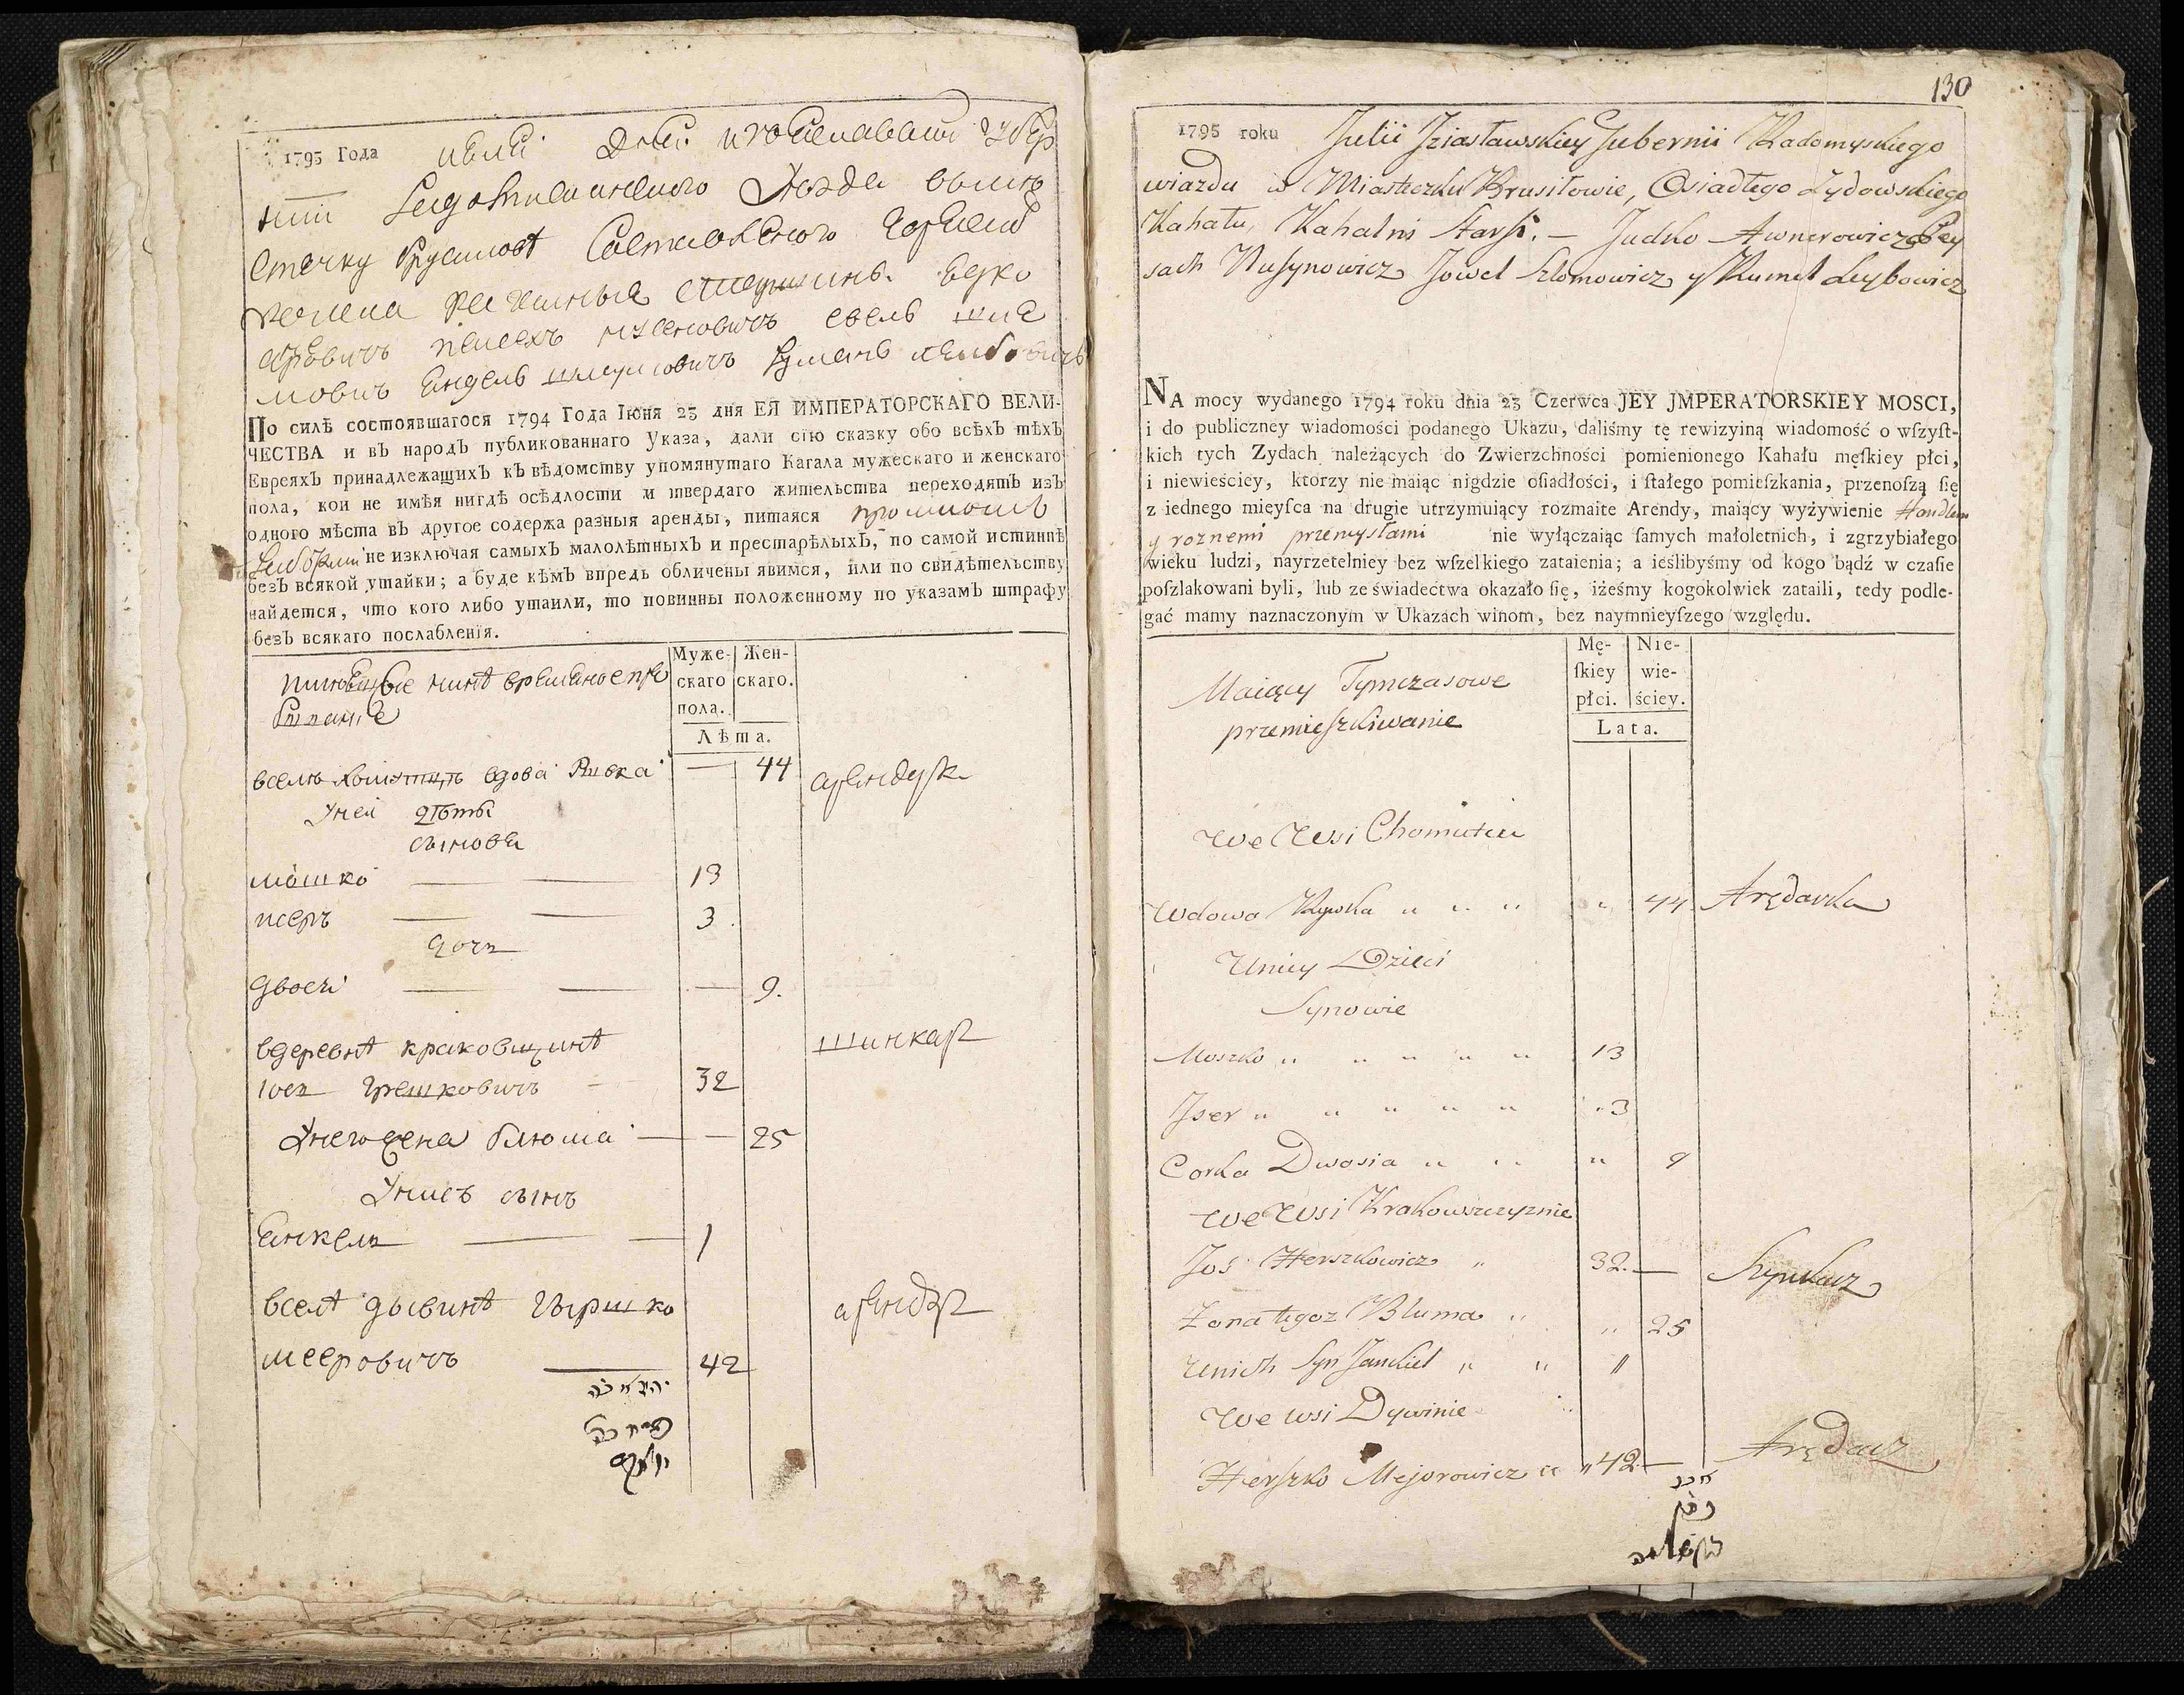 1795 Года июля дня изъяславской губер
нии радомысльского уезда вмес
течку брусилове
кагала кагальные старшины Юдко
пейсехъ нусеновичъ евель шле
мовичъ лейбовичъ
ПО силѣ состоявшагося 1794 Года Іюня 23 дня ЕЯ ИМПЕРАТОРСКАГО ВЕЛИ-
ЧЕСТВА и въ народъ публикованнаго Указа, дали сїю сказку обо всѣхъ тѣхъ
Евреяхъ принадлежащихъ къ вѣдомству упомянутаго Кагала мужескаго и женскаго
пола, кои не имѣя нигдѣ осѣдлости и твердаго жительства переходятъ изъ
одного мѣста въ другое содержа разныя аренды, питаяся
не изключая самыхъ малолѣтныхъ и престарѣлыхъ, по самой истиннѣ
безъ всякой утайки; а буде кѣмъ впредь обличены явимся, или по свидѣтельству
найдется, что кого либо утаили, то повинны положенному по указамъ штрафу
безъ всякаго послабленїя.
Муже- Жен-
скаго скаго.
пола.
Лѣта.
вдова Ривка — 44 арендарк
Унея дѣти
сынова
мошко — — 13
исеръ — — 3
дочь
двося — — — 9.
вдеревнѣ краковщинѣ шинкар
иось гершковичъ - 32
Унего жена блюма — — 25
Унихъ сынъ
Янкель — — 1
вселѣ дывинѣ гершко арендар
мееровичъ — 42
130
1795 roku Julii Iziasławskiey Gubernii Radomyskiego
uiazdu w Miasteczku Brusiłowie, Osiadłego Żydowskiego
Kahału, Kahalni Starsi. — Judko Awnerowicz Pey
sach Nusynowicz Jowel Szlomowicz y Rumel Leybowicz
NA mocy wydanego 1794 roku dnia 23 Czerwca JEY JMPERATORSKIEY MOSCI,
i do publiczney wiadomości podanego Ukazu, daliśmy tę rewizyiną wiadomość o wſzyſt-
kich tych Zydach należących do Zwierzchności pomienionego Kahału męſkiey płci,
i niewieściey, ktorzy nie maiąc nigdzie oſiadłości, i ſtałego pomieſzkania, przenoſzą ſię
z iednego mieyſca na drugie utrzymuiący rozmaite Arendy, maiący wyżywienie Handlem
y roznemi przemysłami nie wyłączaiąc ſamych małoletnich, i zgrzybiałego
wieku ludzi, nayrzetelniey bez wſzelkiego zataienia; a ieślibyśmy od kogo bądź w czaſie
poſzlakowani byli, lub ze świadectwa okazało ſię, iżeśmy kogokolwiek zataili, tedy podle-
gać mamy naznaczonym w Ukazach winom, bez naymnieyſzego względu.
Maiący Tymczasowe
przemieſzkiwanie
Mę- Nie-
ſkiey wie-
płci. ściey.
Lata.
We Wsi Chomutcu
Wdowa Rywka " " " " 44 Arędarka
Uniey Dzieci
Synowie
Moszko " " " " " 13
Jser " " " " " " 3
Corka Dwosia " " " 9
We Wsi Krakowszczyznie
Jos Herszkowicz " 32. — Szynkarz
Zona tegoz Bluma " " 25
Unich Syn Jankiel " " 1
We wsi Dywinie
Herſzko Mejorowicz " " 42 — Arędarz